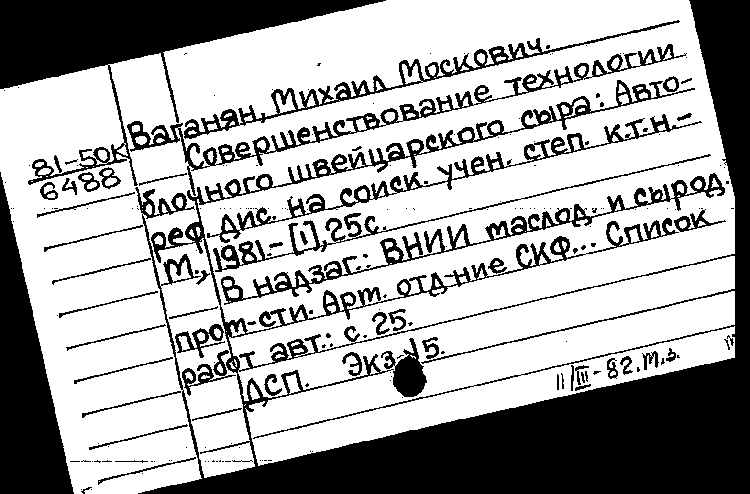 81-50К
6488
Ваганян, Михаил Москович.
Совершенствование технологии
блочного швейцарского сыра: Авто-
реф. дис. на соиск. учен. степ. к.т.н.-
М., 1981.- [1], 25с.
В надзаг.: ВНИИ маслод. и сырод.
пром-сти. Арм. отд-ние СКФ... Список
работ авт.: с. 25.
ДСП. Экз. 5.
11/III-82.М.з.